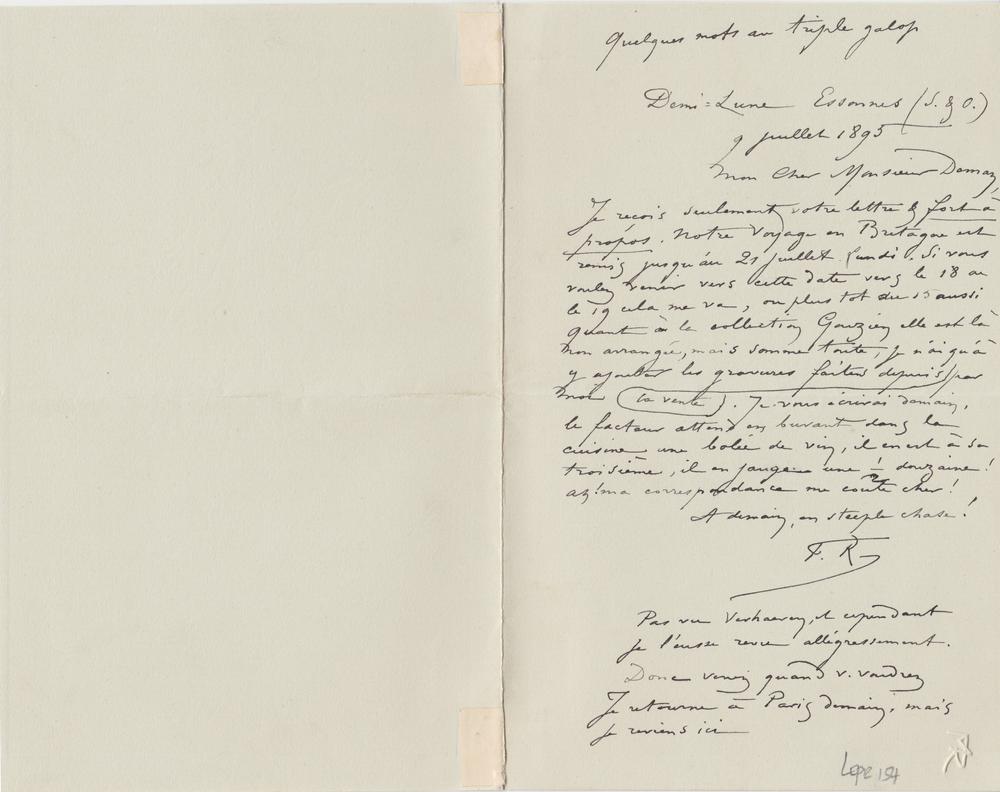 Quelques mots au triple galop
Demi=Lune Essonnes (S. & O.)
9 juillet 1895
Mon Cher Monsieur Deman,
Je reçois seulement votre lettre & fort à
propos. Notre voyage en Bretagne est
remis jusqu'au 21 juillet Lundi. Si vous
voulez venir vers cette date vers le 18 ou
le 19 cela me va, ou plus tot du 15 aussi
quant à la collection Gouzien elle est là
non arrangée, mais somme toute, je n'ai qu'à
y ajouter les gravures faites depuis par
moi (la vente). Je vous écrirai demain,
le facteur attend en buvant dans la
cuisine une bolée de vin, il en est à sa
troisième, il en jauge une ½ douzaine!
ah! ma correspondance me coûte cher!
A demain, en steeple chase!
F. R
Pas vu Verhaeren, et cependant
je l'eusse revu allégressement.
Donc venez quand v. voudrez
Je retourne à Paris demain, mais
je reviens ici